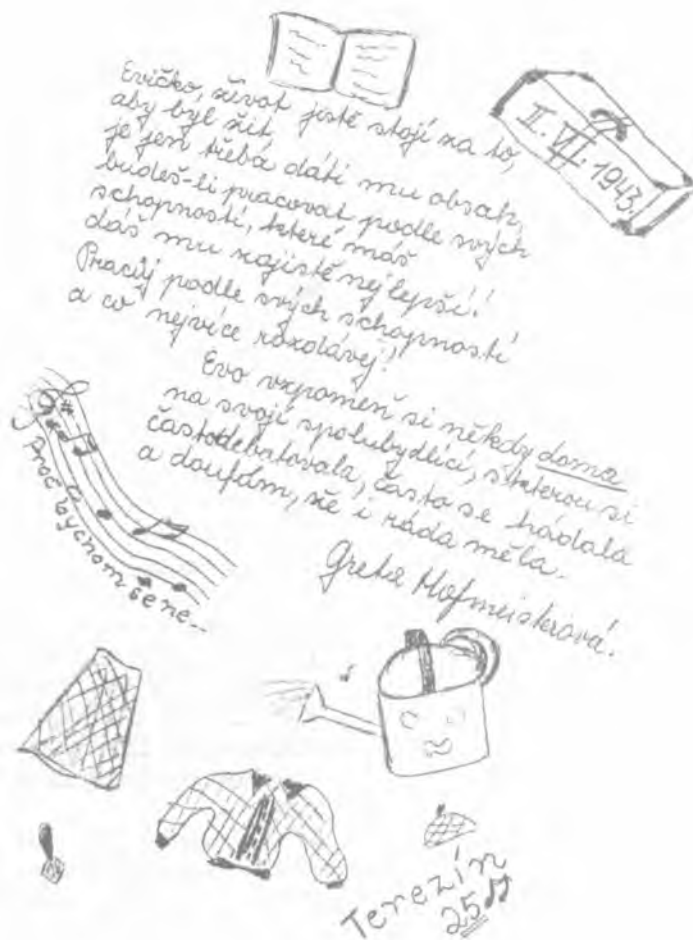 Evičko, život jistě stojí za to,
aby byl žit
je jen třeba dáti mu obsah,
budeš-li pracovat podle svých
schopností, které máš
dáš mu zajisté nejlepší!
Pracůj podle svých schopností
a co nejvíce rozdávej!
II. VI. 1943.
Evo vzpomeň si někdy doma
na svojí spolubydlící, s kterou si
často debatovala, často se hádala
a doufám, že i ráda měla.
Greta Hofmeisterová.
Proč bychom se ne..
Terezín
25